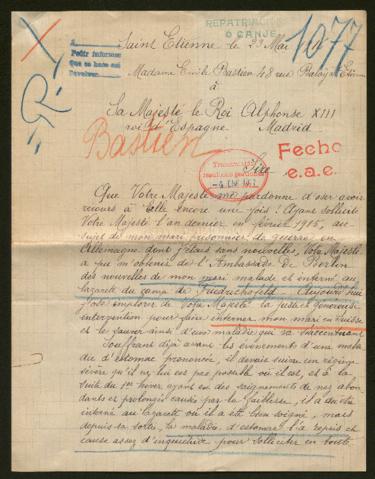 REPATRIACION
O CANJE
1077
Saint Etienne le 23 Mai
A
Pedir informes
Que se hace así
Devolver
Madame Emile Bastien 48 rue Balaÿ St Etienne
à
Sa Majesté le Roi Alphonse XIII
roi d'Espagne Madrid
Bastien
Sire
Fecho
e.a.e.
Que Votre Majesté me pardonne d'oser avoir
recours à Elle encore une fois! Ayant sollicité
Votre Majesté l'an dernier en février 1915, au
sujet de mon mari prisonnier de guerre en
Allemagne dont j'étais sans nouvelles, Votre Majesté
a pu m'obtenir de l'Ambassade de Berlin
des nouvelles de mon mari malade et interné au
lazareth du camp de Friedrichsfeld. Aujourd'hui
j'ose implorer de Votre Majesté la juste et généreuse
intervention pour faire interner mon mari en Suisse
et le sauver ainsi d'une maladie qui va s'accentuant
Souffrant déjà avant les événements d'une mala
die d'estomac prononcée, il devait suivre un régime
sévère qu'il ne lui est pas possible où il est, et à la
suite du 1er hiver ayant eu des saignements de nez abon
dants et prolongés causés par la faiblesse, il a du être
interné au lazareth où il a été bien soigné, mais
depuis sa sortie, la maladie d'estomac l'a repris et
cause assez d'inquiétude pour solliciter en toute